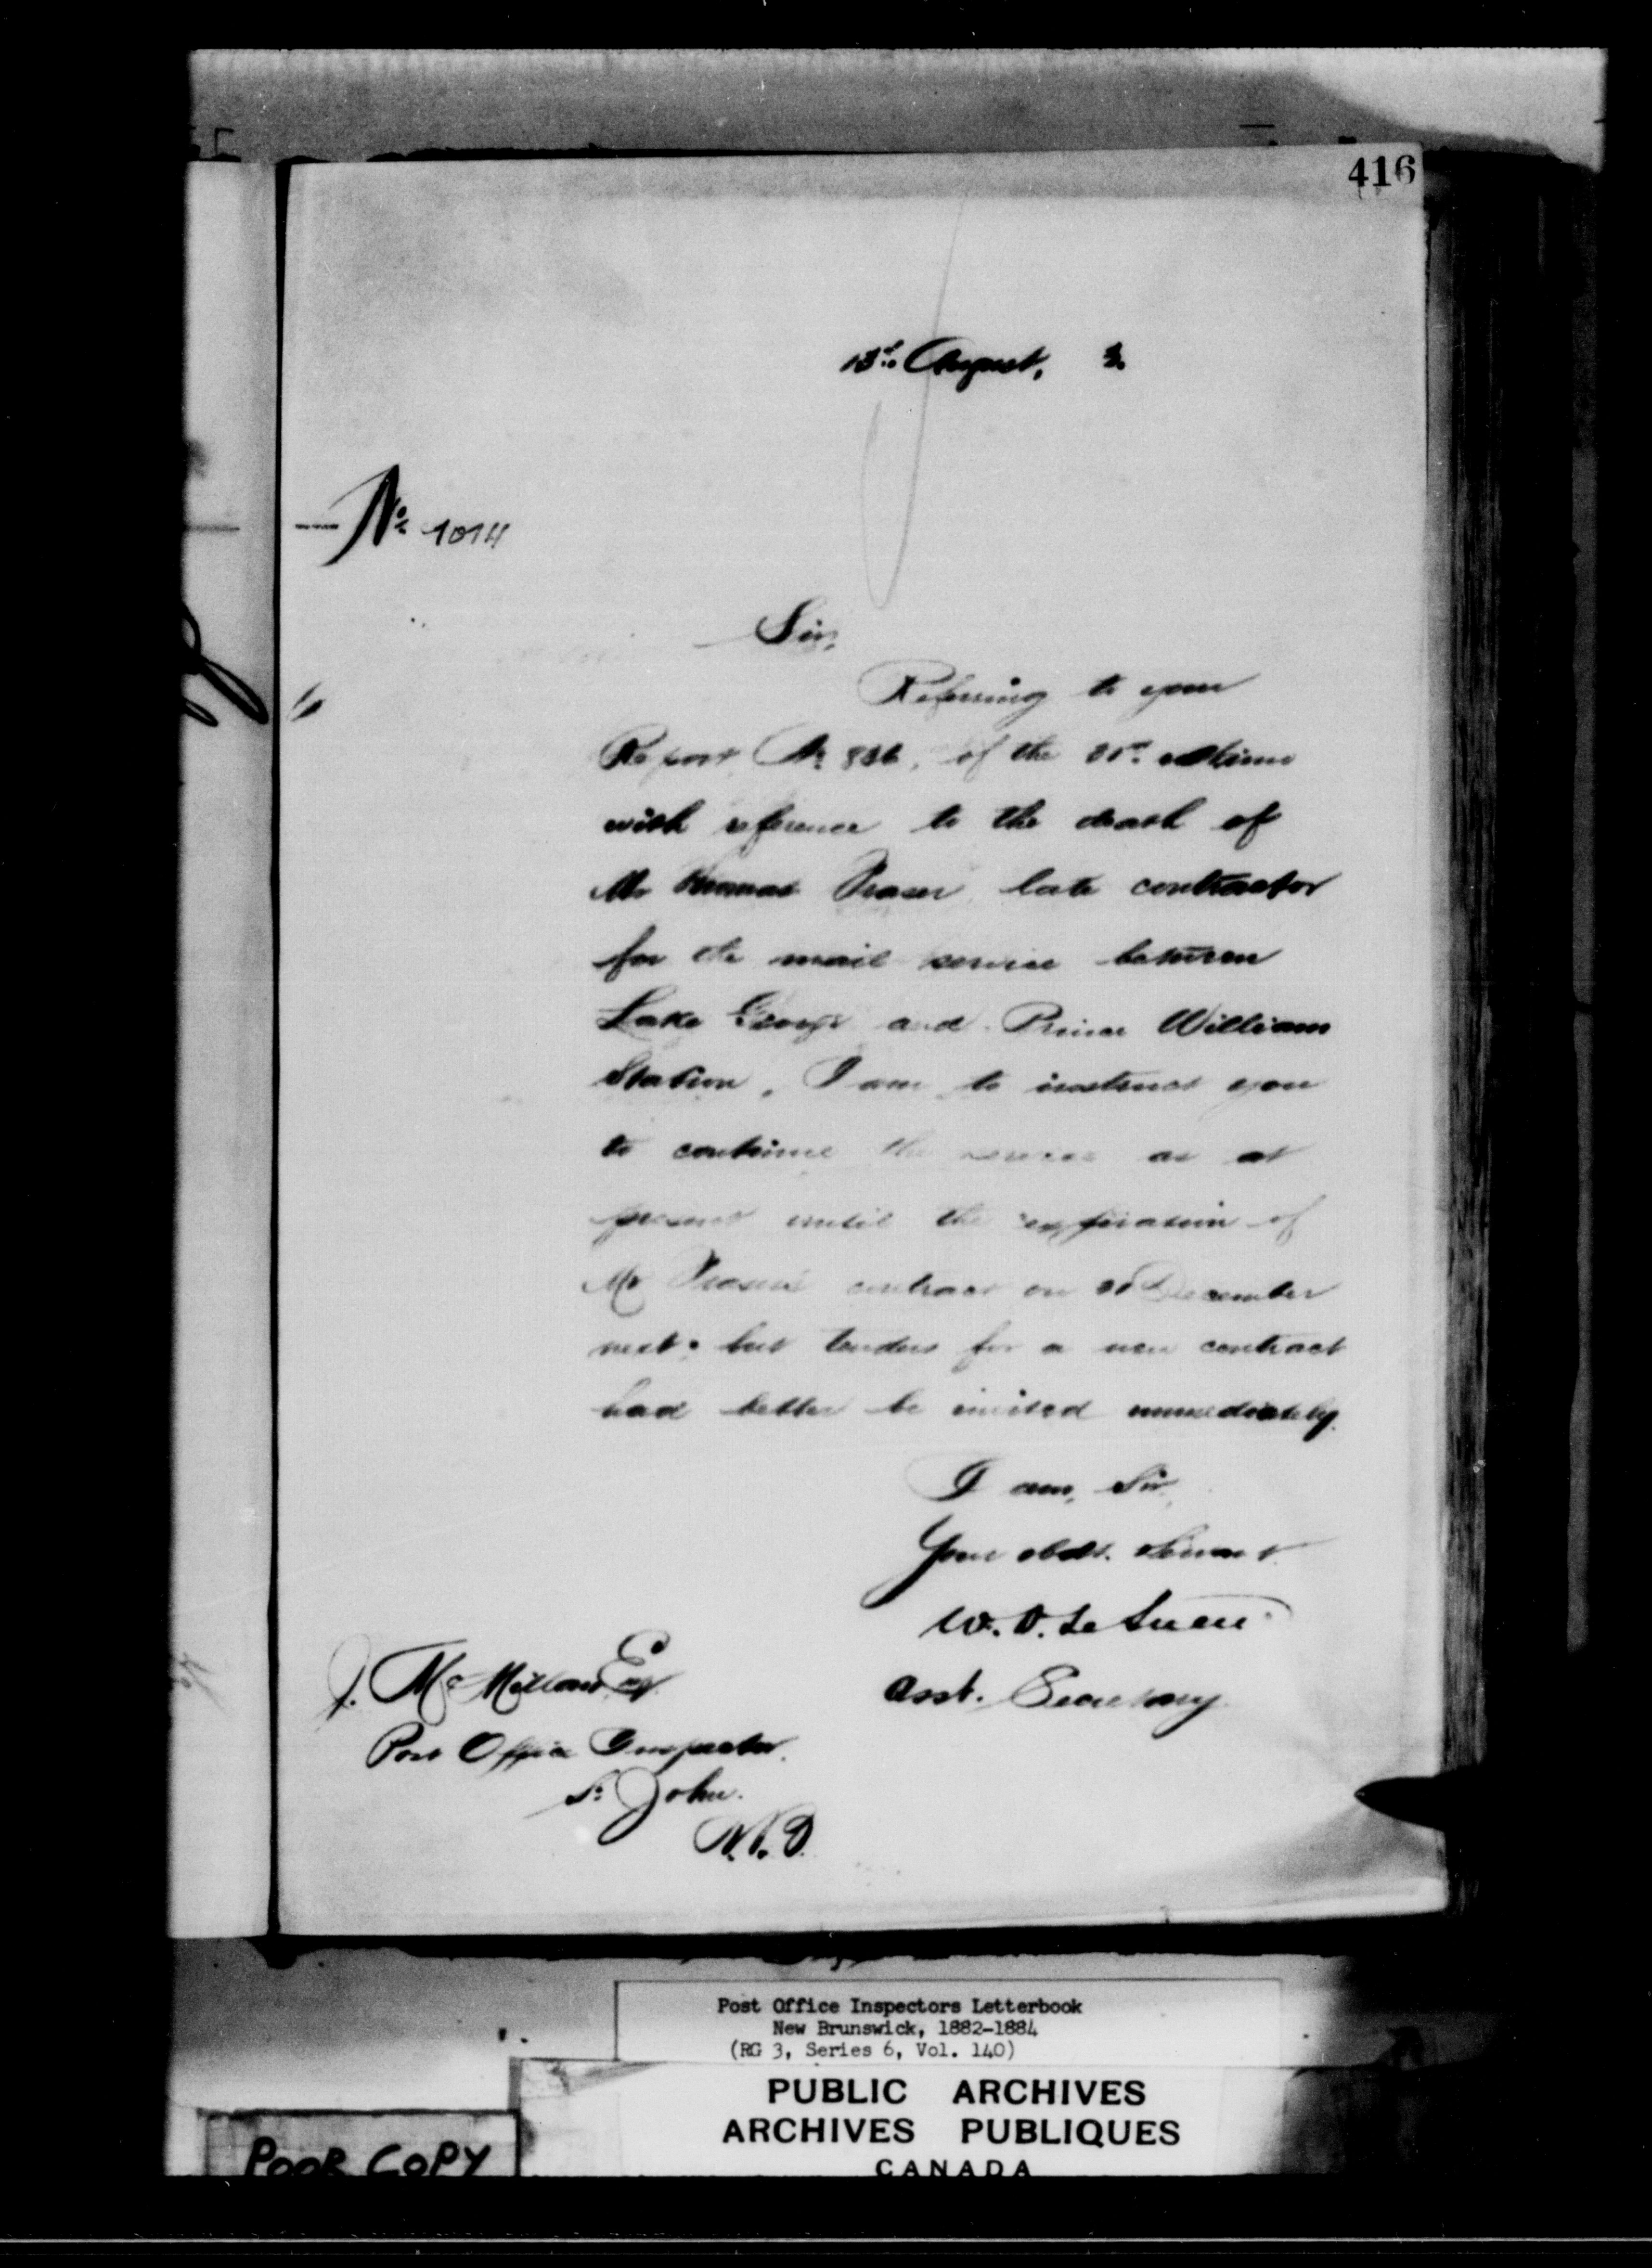 416
13th August, 3.
No 1014
Sir,
Referring to your
Report, No 836, of the 31st ultimo
with reference to the death of
Mr Thomas Fraser, late contractor
for the mail service between
Lake George and Prince William
Station, I am to instruct you
to continue the service as at
present until the expiration of
Mr Fraser's contract on 31 December
next: but tenders for a new contract
had better be invited immediately.
I am, Sir,
Your obdt. Servant
W. D. Le Sueur
Asst. Secretary
J. McMillan Esq
Post Office Inspector.
St John.
N.B.
Post Office Inspectors Letterbook
New Brunswick, 1882-1884
(RG 3, Series 6, Vol. 140)
PUBLIC ARCHIVES
ARCHIVES PUBLIQUES
CANADA
POOR COPY